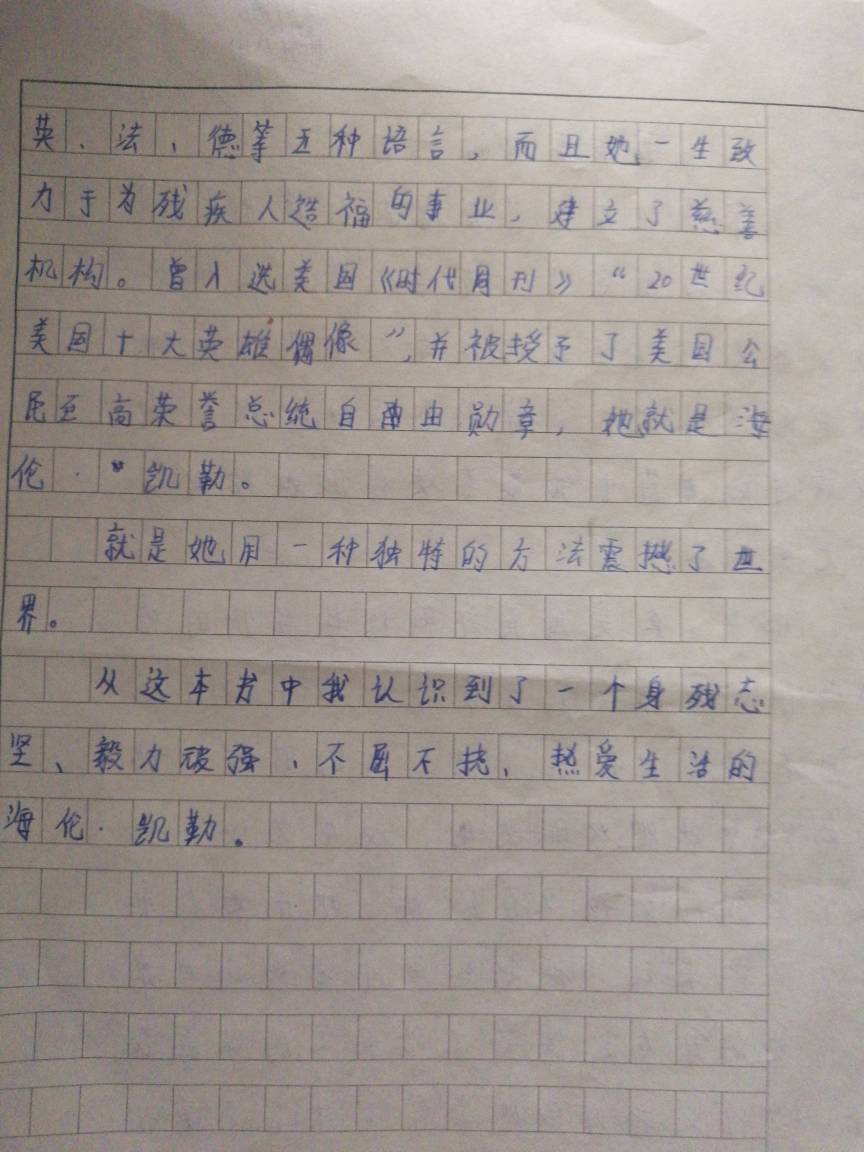 英、法、德等五种语言，而且她一生致
力于为残疾人造福的事业，建立了慈善
机构。曾入选美国《时代周刊》“20世纪
美国十大英雄偶像”，并被授予了美国公
民至高荣誉总统自由勋章，她就是海
伦·凯勒。
就是她用一种独特的方法震撼了世
界。
从这本书中我认识到了一个身残志
坚、毅力顽强、不屈不挠、热爱生活的
海伦·凯勒。